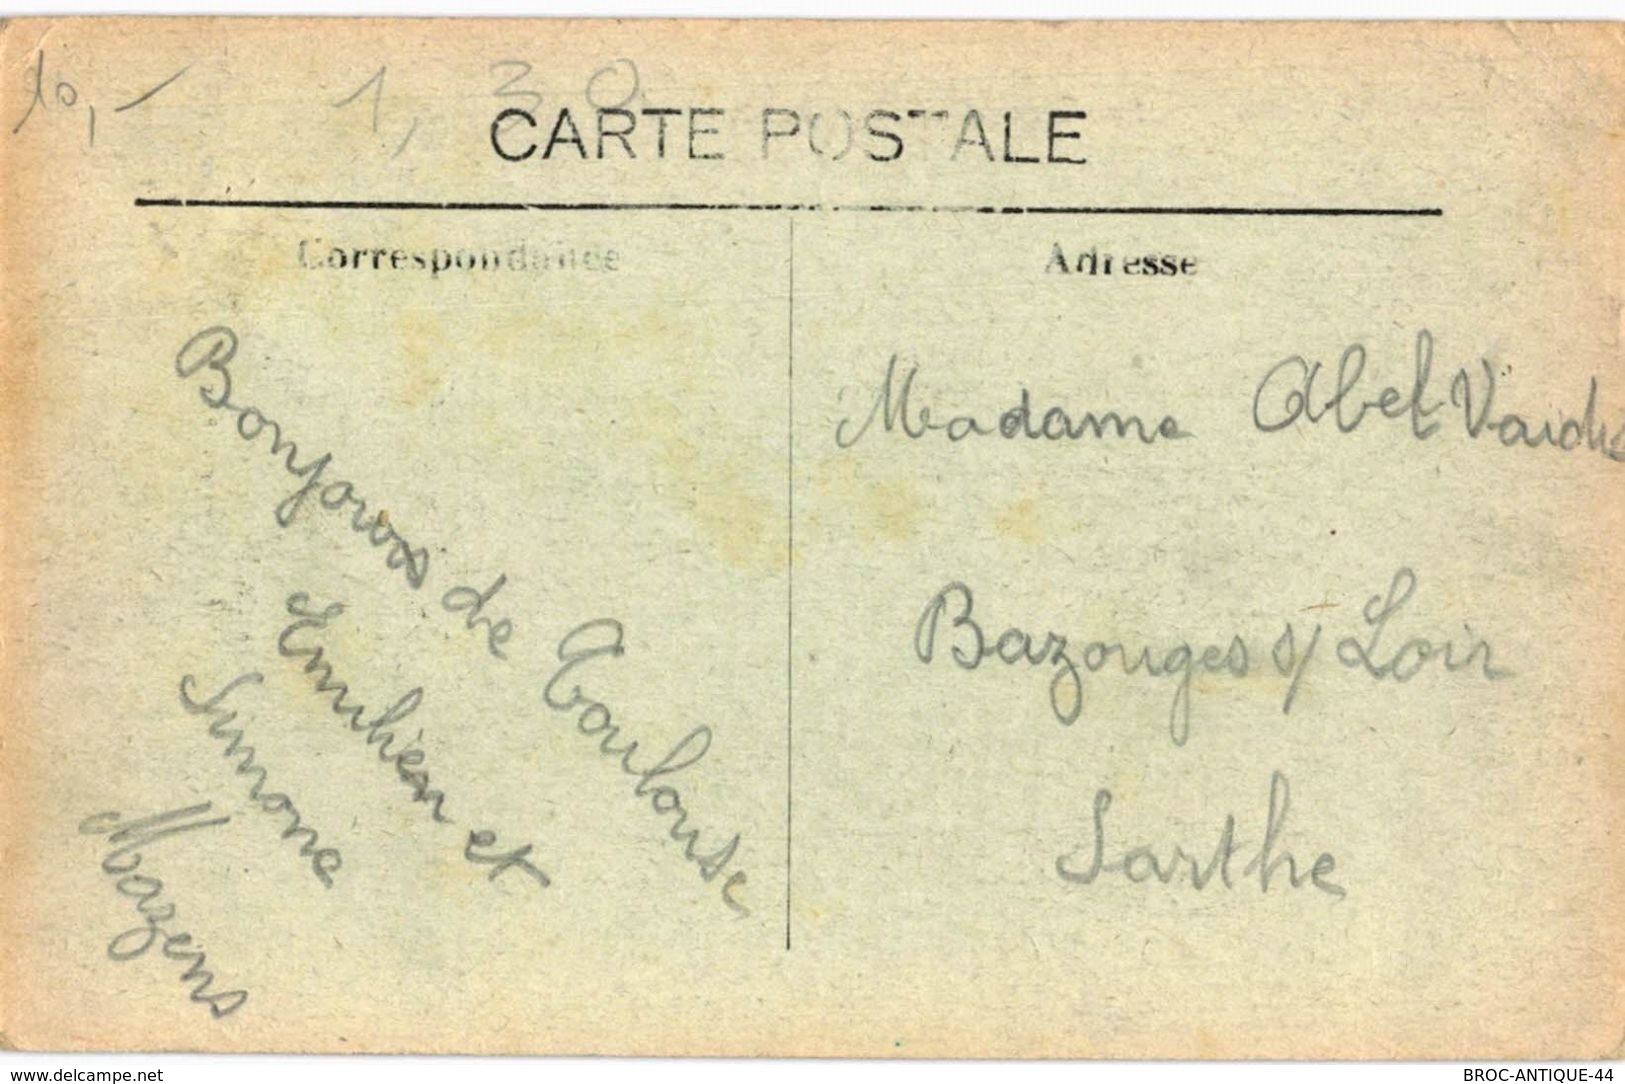 10,-
1,30
CARTE POSTALE
Correspondance
Adresse
Bonjours de Toulouse
Emilien et
Simone
Mazens
Madame Abel
Bazouges s/ Loir
Sarthe
www.delcampe.net
BROC-ANTIQUE-44